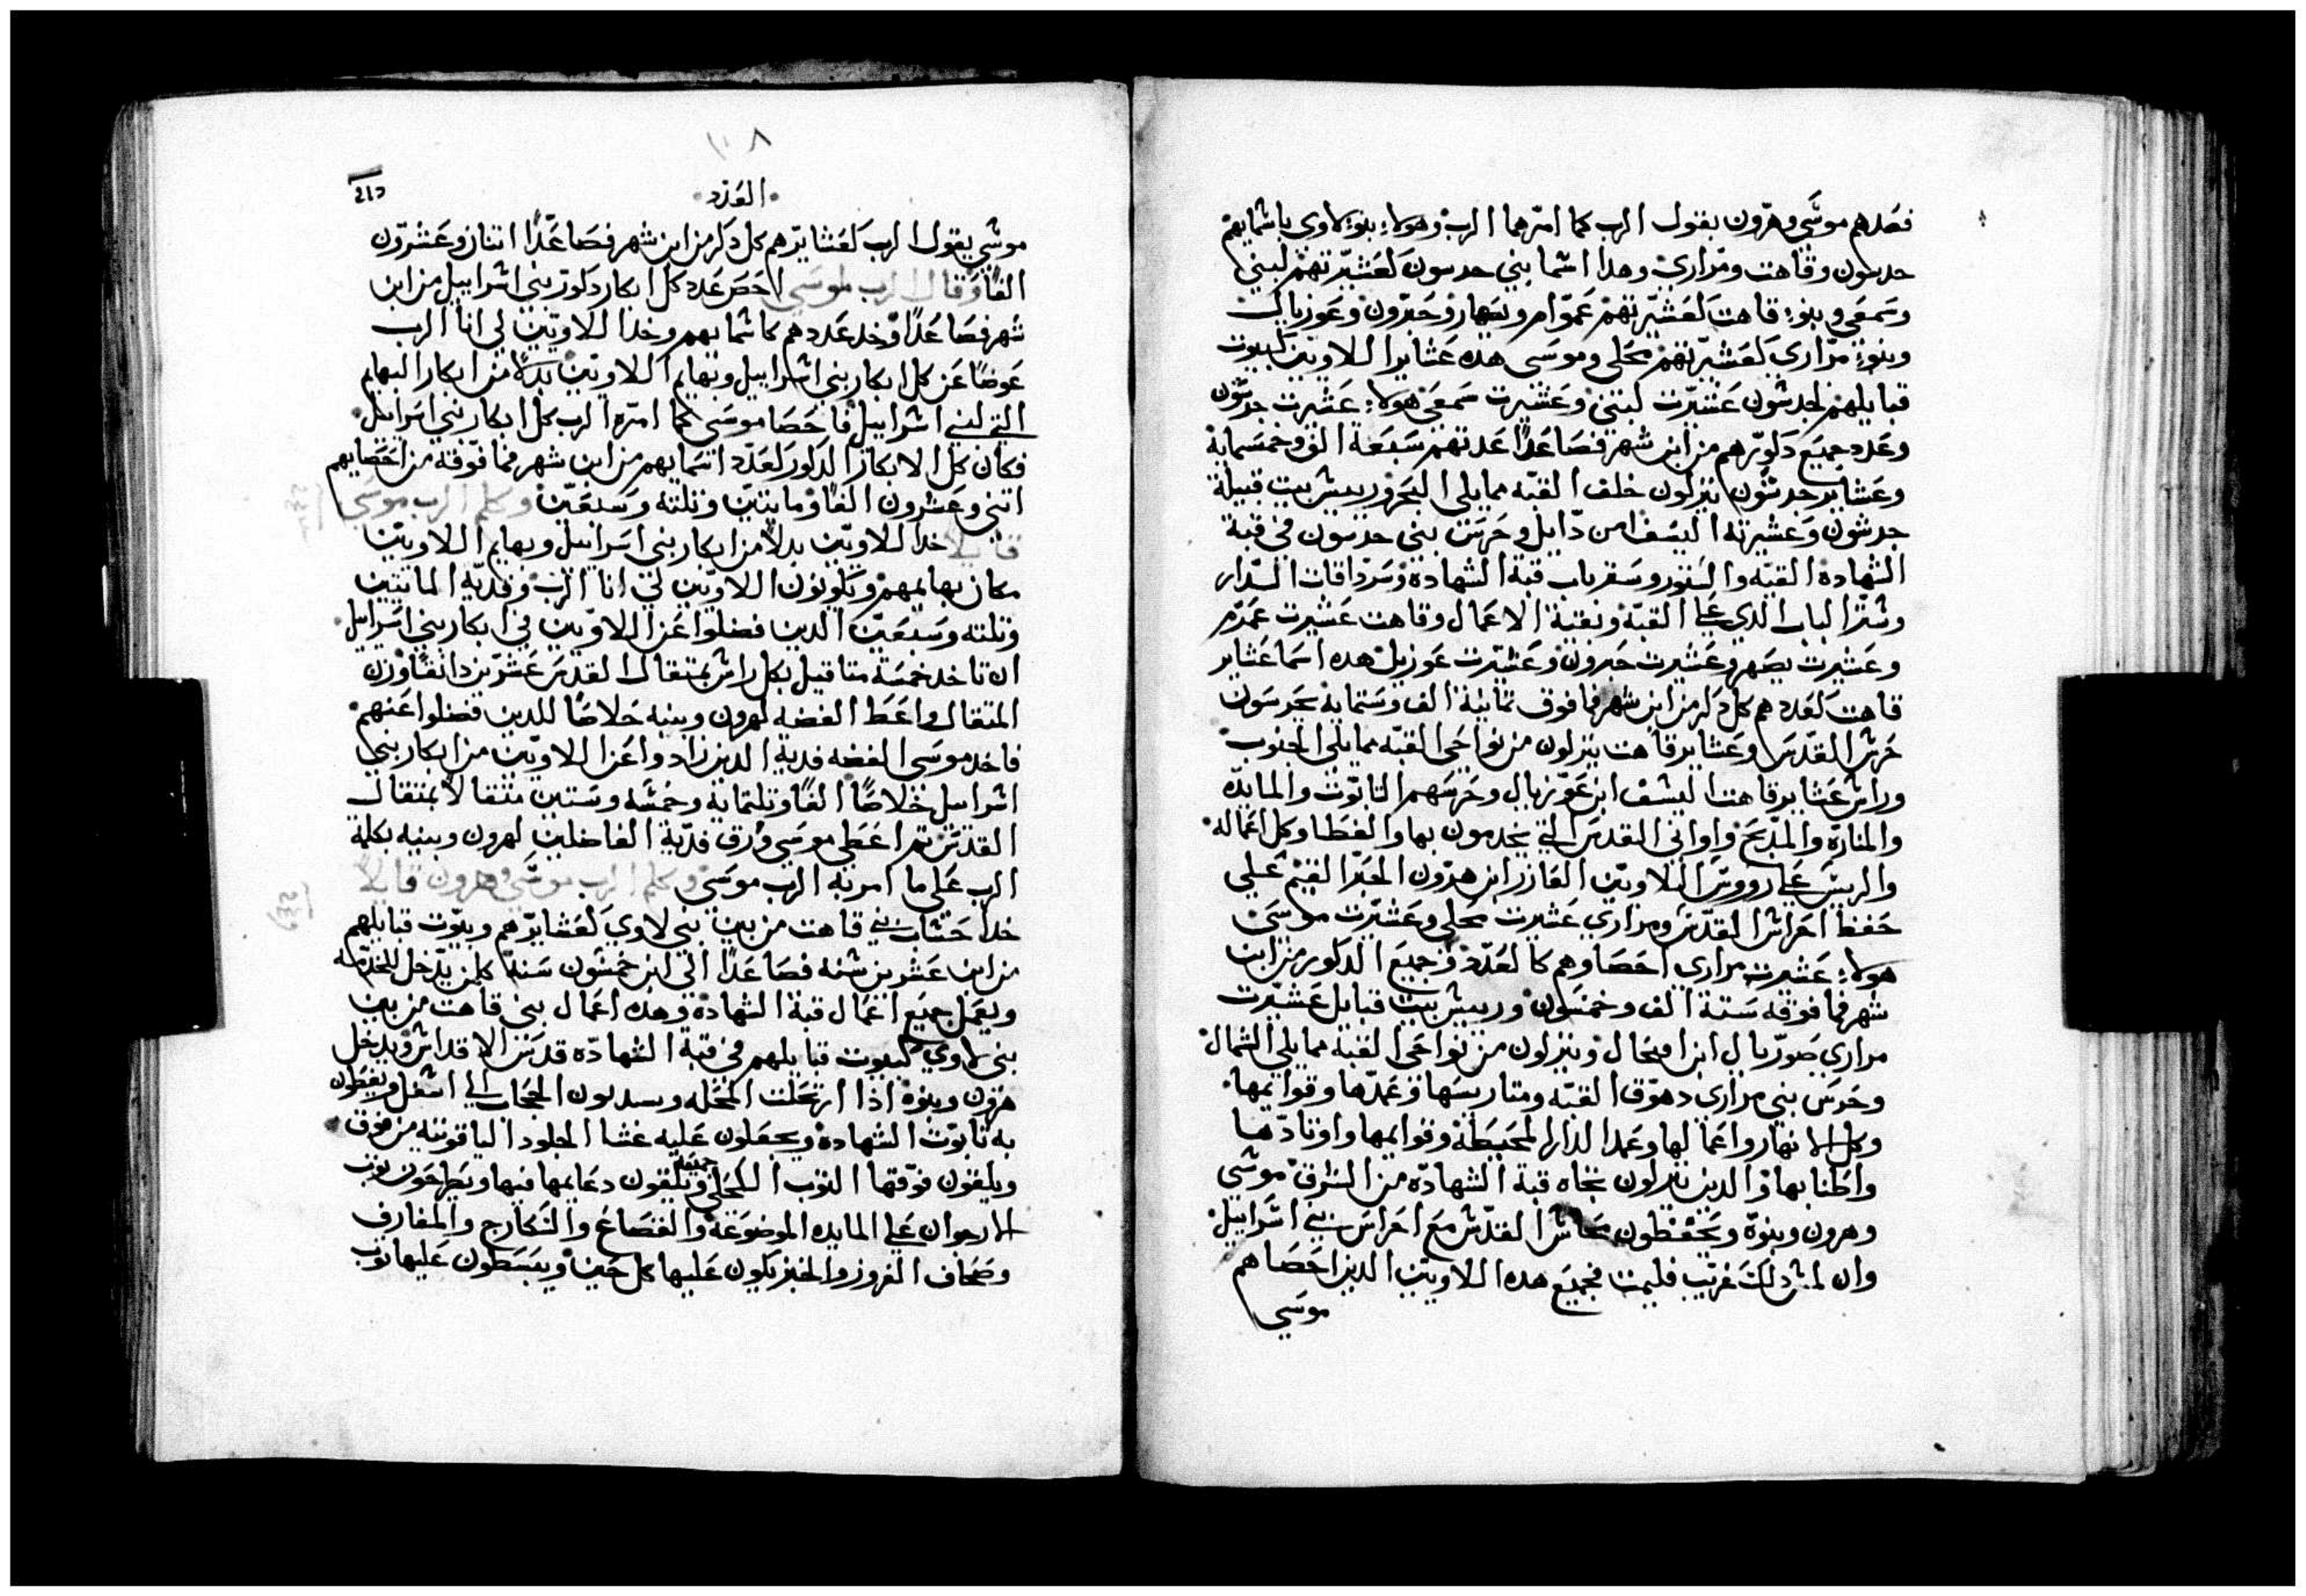 فعدهم موسَي وهرون بقول الرب كما امرهما الرب وهولاء بنو لاوي باسمايهم
حدسون وقاهت ومراري وهدا اسما بني حدسون لعَشيرتهم لبني
وسمعَي وبنوء قاهت لعَشيرتهم عَموامر ويصهار وحَبرون وعَوزيال
وبنوء مراري لعَشيرتهم محلي وموسَي هده عَشاير اللاويين لبيوت
قبايلهم لجدشون عَشيرت لبني وعَشيرت سَمعَي هولاء عَشيرت جدشون
وعَدد جميعَ دكورهم من ابن شهر فصَاعَدًا عَدتهم سَبعَة الف وخمسماية
وعَشاير جدشون ينزلون خلف القبه مما يلي البحَر وريس بيت قبيلة
جدشون وعَشيرته اليسف ابن دايل وحَرس بني جدسون في قبة
الشهادة القبه والستور وستر باب قبة الشهادة وسَرداقات الدار
وستر الباب الدي علي القبه وبقية الاعمال وقاهت عَشيرت عَمرم
وعَشيرت يصَهر وعَشيرت حَبرون وعَشيرت عَوزيل هده اسَما عَشاير
قاهت لعَددهم كل دكر من ابن شهر فما فوق تمانية الف وستماية يحَرسَون
حَرس القدس وعَشاير قاهت ينزلون من نواحَي القبه مما يلي الجنوب
وراس عَشاير قاهت اليسف ابن عَوزيال وحَرسَهم التابوت والمايده
والمناره والمدبح واواني القدس التي يخدمون بها والغطا وكل اعَماله
والريس علي رووس اللاويين العَازر ابن هرون الحَبر القيم علي
حَفظ احَراس القدس ومراري عَشيرت محَلي وعَشيرت موسَي
هولاء عَشيرت مراري احَصَاوهم كالعَدد وجميعَ الدكور من ابن
شهر فما فوقه سَتة الف وخمسَون وريس بيت قبايل عَشيرت
مراري صَوريال ابن اميحَال وينزلون من نواحَي القبة مما يلي الشمال
وحَرسَ بني مراري دهوق القبه ومتاريسَها وعَمدها وقوايمها
وكل الانهار واعَمالها وعَمد الدار المحَيطة وقوايمها واوتادها
واطنابها والدين ينزلون تجاه قبة الشهاده من الشرق موسَي
وهرون وبنوه ويحَفظون محَاس القدس معَ احَراسَ بني اسَراييل
وان لمس دلك غريب فليمت فجميعَ هده اللاويين الدين احَصَاهم
موسَي
١٠٨
العَدد
موسَي بقول الرب لعَشايرهم كل دكر من ابن شهر فصَاعَدًا اتنان وعَشرون
الفًا وقال الرب لموسَي احَصَ عَدد كل ابكار دكور بني اسَراييل من ابن
شهر فصَاعَدًا وخد عَددهم كاسَمايهم وخد اللاويين لي انا الرب
عَوضًا عَن كل ابكار بني اسَراييل وبهايم اللاويين بدلًا من ابكار البهايم
التي لبني اسَراييل فاحَصَا موسَي كما امره الرب كل ابكار بني اسَراييل
فكان كل الابكار الدكور لعَدد اسَمايهم من ابن شهر فما فوقه من احَصَايهم
اتني وعَشرون الفًا ومايتين وتلته وسَبعَين وكلم الرب موسَي
قايلًا خد اللاويين بدلًا من ابكار بني اسَراييل وبهايم اللاويين
مكان بهايمهم ويكونون اللاويين لي انا الرب وفدية المايتين
وتلته وسَبعَين الدين فضلوا عَن اللاويين في ابكار بني اسَراييل
ان تاخد خمسَة متاقيل بكل راس بمتقال القدس عَشرين دانقًا وزن
المتقال واعَط الفضه لهرون وبنيه خلاصًا للدين فضلوا عَنهم
فاخد موسَي الفضه فدية الدين زادوا عَن اللاويين من ابكار بني
اسَراييل خلاصًا الفًا وتلتماية وخمسَه وسَتين متقالًا بمتقال
القدس تم اعَطي موسَي ورق فدية الفاضلين لهرون وبنيه بكلمة
الرب عَلي ما امر به الرب موسَي وكلم الرب موسَي وهرون قايلًا
خدا حَسَاب بني قاهت من بين بني لاوي لعَشايرهم وبيوت قبايلهم
من ابن عَشرين سَنه فصَاعَدًا الي ابن خمسَون سَنة كلمن يدخل للخدمه
ويعَمل جميعَ اعَمال قبة الشهادة وهده اعَمال بني قاهت من بين
بني لاوي لبيوت قبايلهم في قبة الشهاده قدس الاقداس ويدخل
هرون وبنوه ادا ارتحَلت المحَله ويسدلون الحَجاب الي اسَفل ويغطون
به تابوت الشهادة ويجعَلون عَليه غشا الجلود الياقوتيه من فوق
ويلقون فوقها التوب الكحَلي جميعَه ويلقون دعَايمها فيها ويطرحَون توب
الارجوان علي المايده الموضوعَة والقصَاعَ والسَكارج والمغارف
وصَحَاف الغروز والخبز يكون عَليها كل حَين ويبسَطون عَليها توب